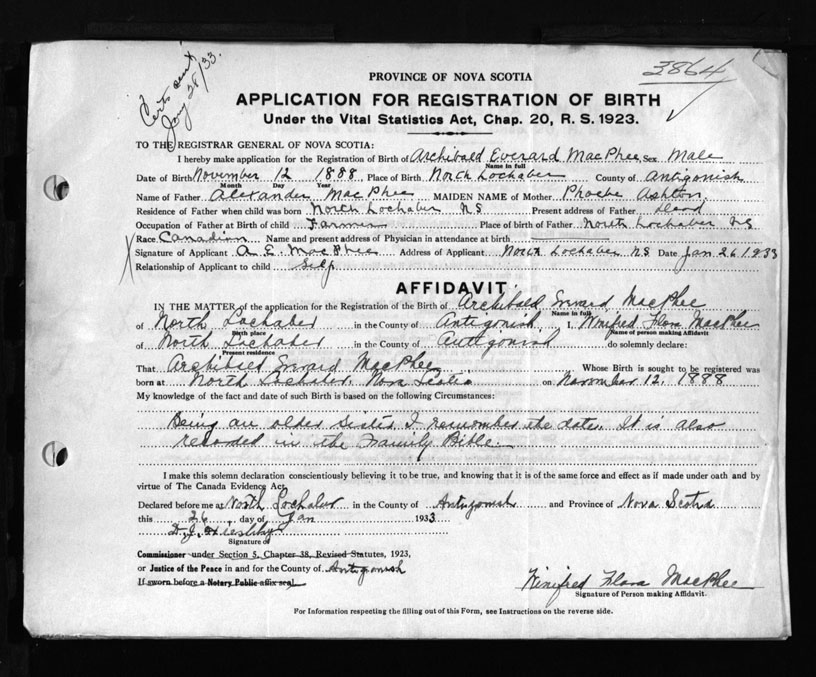 Certs sent
Jany 28/33.
3864
PROVINCE OF NOVA SCOTIA
APPLICATION FOR REGISTRATION OF BIRTH
Under the Vital Statistics Act, Chap. 20, R. S. 1923.
TO THE REGISTRAR GENERAL OF NOVA SCOTIA:
I hereby make application for the Registration of Birth of Archibald Everard MacPhee, Sex Male
Name in full
Date of Birth November 12 1888, Place of Birth North Lochaber County of Antigonish
Month Day Year
Name of Father Alexander MacPhee MAIDEN NAME of Mother Phoebe Ashton
Residence of Father when child was born North Lochaber NS Present address of Father Dead
Occupation of Father at Birth of child Farmer Place of birth of Father North Lochaber NS
Race Canadian Name and present address of Physician in attendance at birth
Signature of Applicant A. E. MacPhee Address of Applicant North Lochaber NS Date Jan 26 1933
Relationship of Applicant to child Self
AFFIDAVIT
IN THE MATTER of the application for the Registration of the Birth of Archibald MacPhee
Name in full
of North Lochaber in the County of Antigonish, I, Winifred Flora MacPhee
Birth place Name of person making Affidavit
of North Lochaber in the County of Antigonish do solemnly declare:
Present residence
That Archibald MacPhee Whose Birth is sought to be registered was
born at North Lochaber, Nova Scotia on November 12, 1888
My knowledge of the fact and date of such Birth is based on the following Circumstances:
Being an older sister I remember the date. It is also
recorded in the Family Bible.
I make this solemn declaration conscientiously believing it to be true, and knowing that it is of the same force and effect as if made under oath and by
virtue of The Canada Evidence Act.
Declared before me at North Lochaber in the County of Antigonish and Province of Nova Scotia
this 26 day of Jan 1933
D. J.
Signature of
Commissioner under Section 5, Chapter 38, Revised Statutes, 1923,
or Justice of the Peace in and for the County of Antigonish
If sworn before a Notary Public affix seal.
Winifred Flora MacPhee
Signature of Person making Affidavit.
For Information respecting the filling out of this Form, see Instructions on the reverse side.